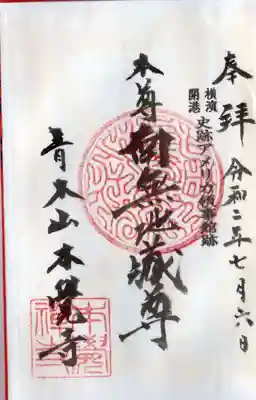 奉拝 令和二年七月六日
横濱開港
史跡アメリカ領事館跡
本尊 南無地蔵尊
青木山本覺寺